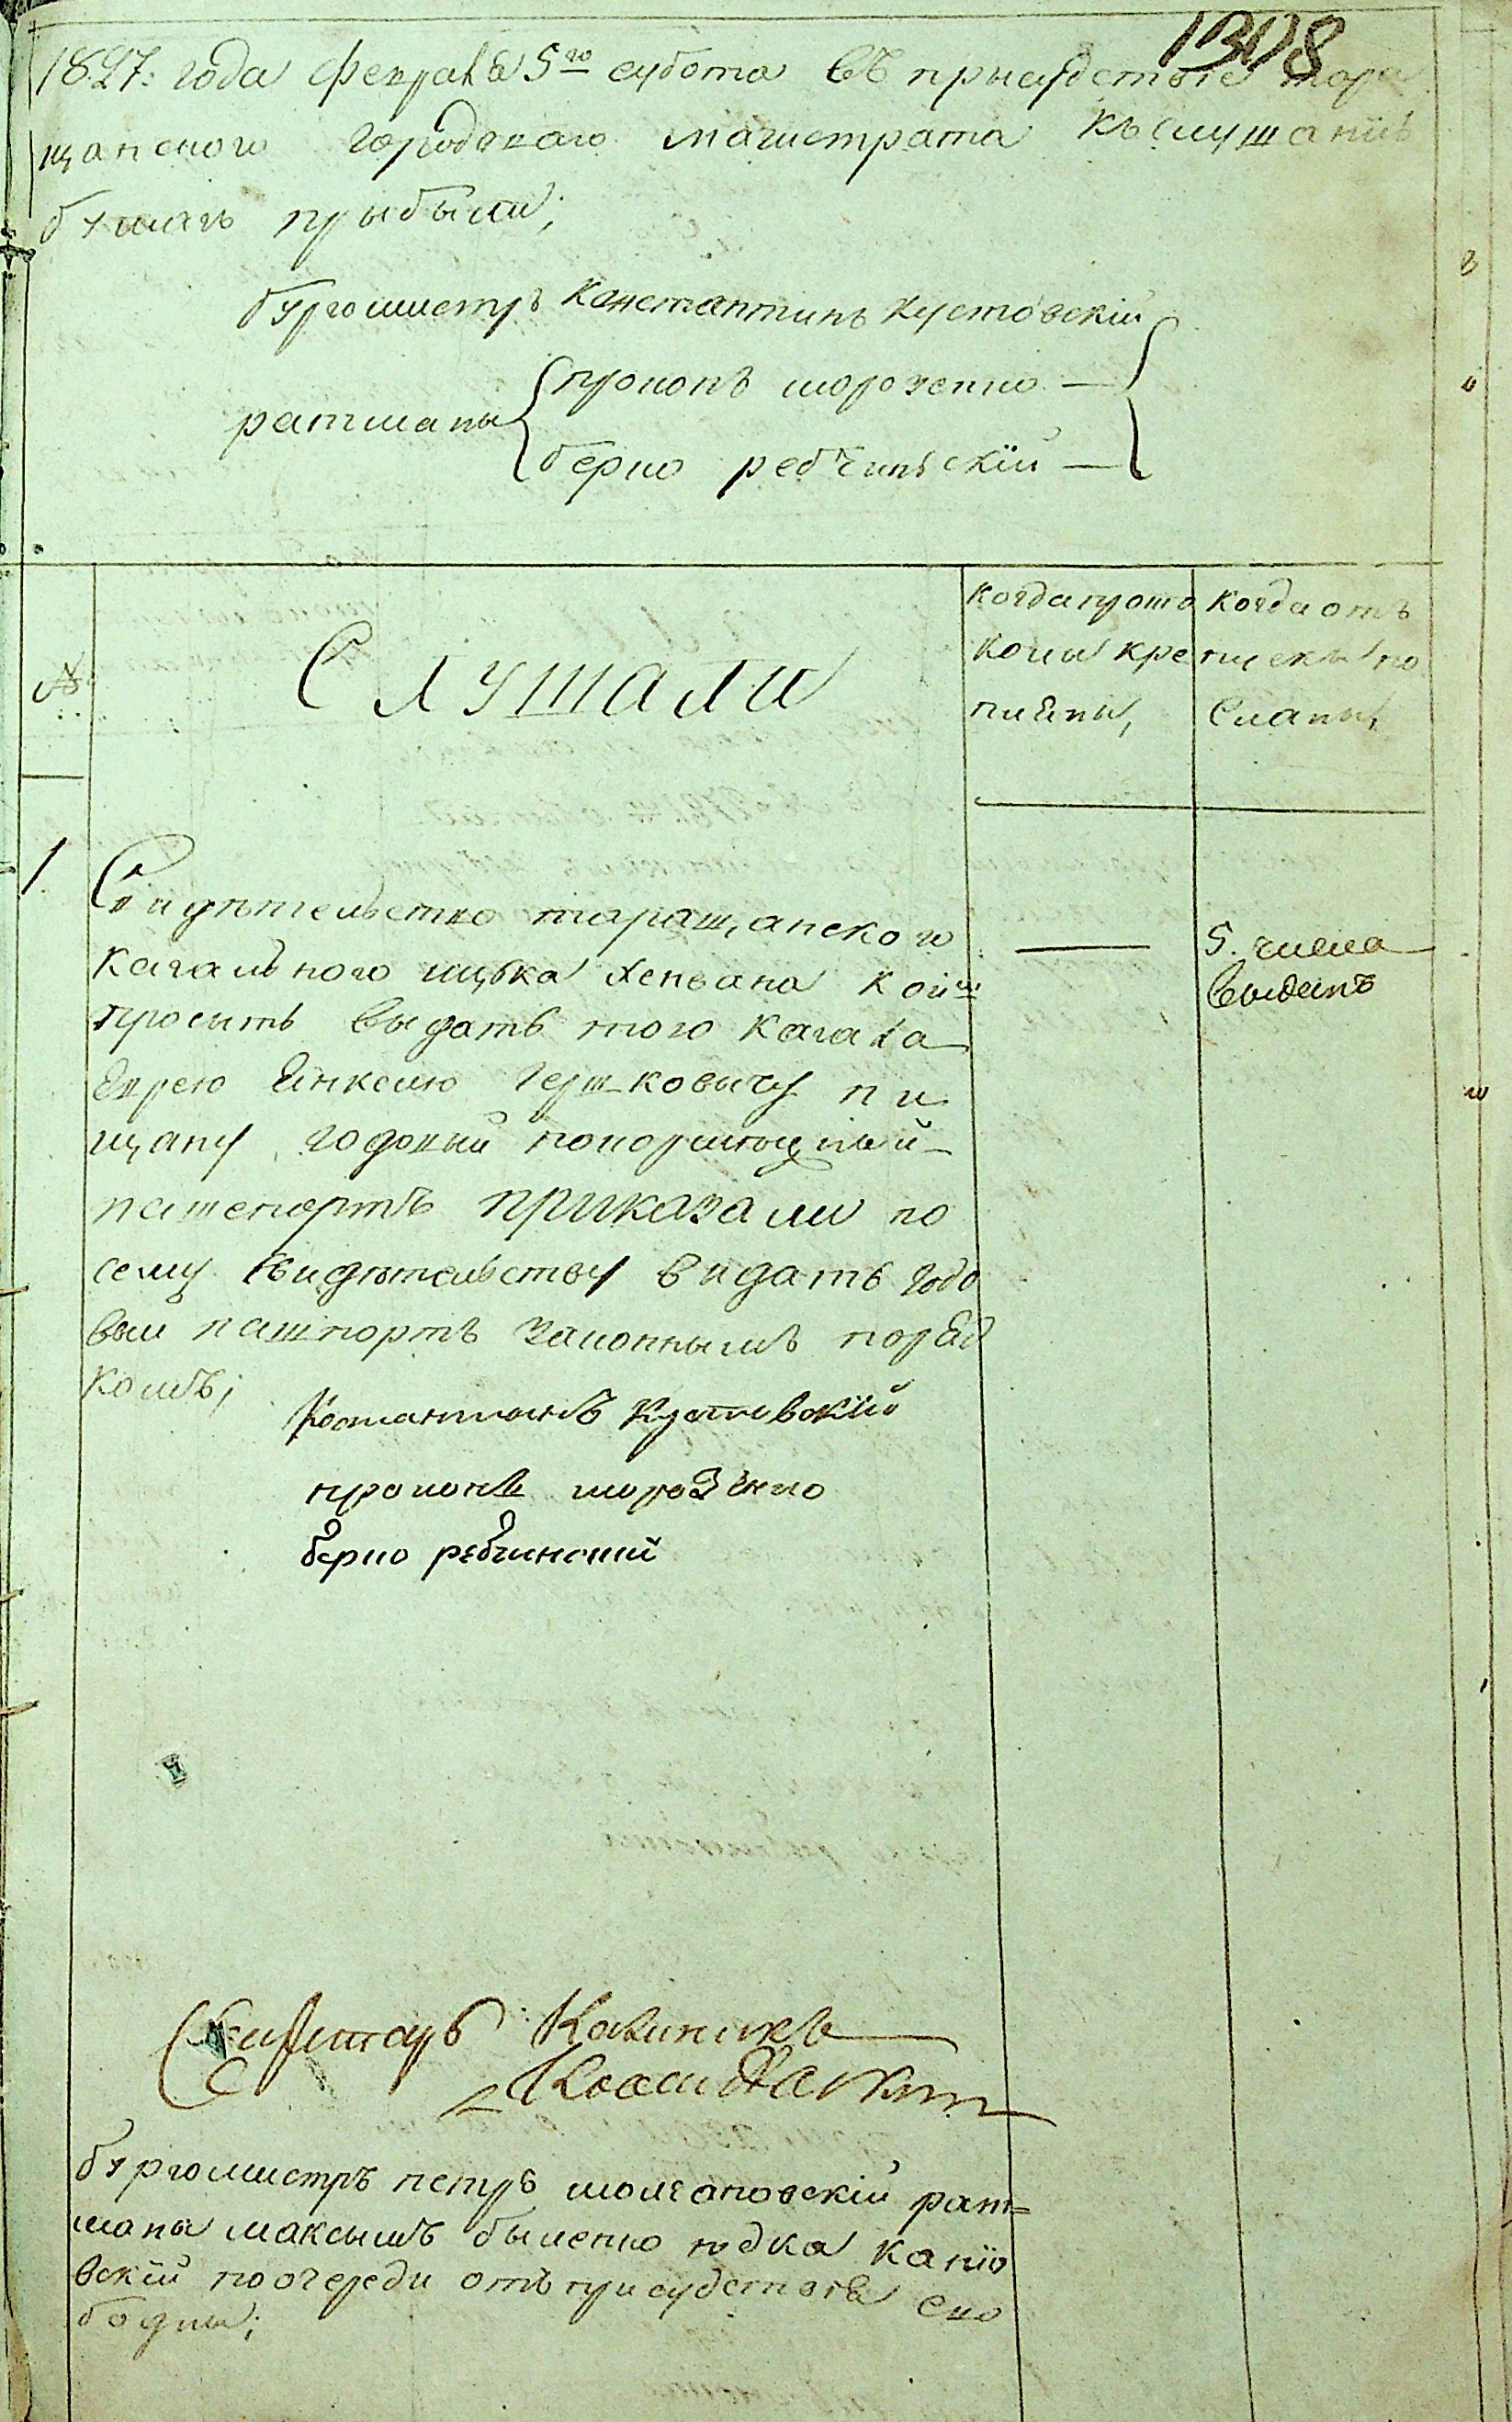 1308
1827: года февраля 5го субота въ присудствие тара
щанского городоваго магистрата къ слушанию
бумагъ прыбыли;
бургомистръ Константинъ Кустовскій
ратманы
прокопъ морозенко —
берко ребчинскій —
№
Слушали
когда прото
колы кре
плены,
когда отъ
пуски по
сланы,
1
Свидѣтельство таращанского
кагального Кой
просить выдать того кагала
еврею Юнкелю Гершковичу пи
щану годовый покормежный
пашепортъ приказали по
сему свидѣтельству видать годо
вый пашпортъ законнымъ поряд
комъ;
—
5. числа
выданъ
Костантинъ Кустовскій
прокопъ морозенко
берко ребчинский
Секретарь Калиникъ
бургомистръ петръ молчановскій рат=
маны максымъ быленко юдка каніо
вскій по очереди отъ присудствія сво
бодны;